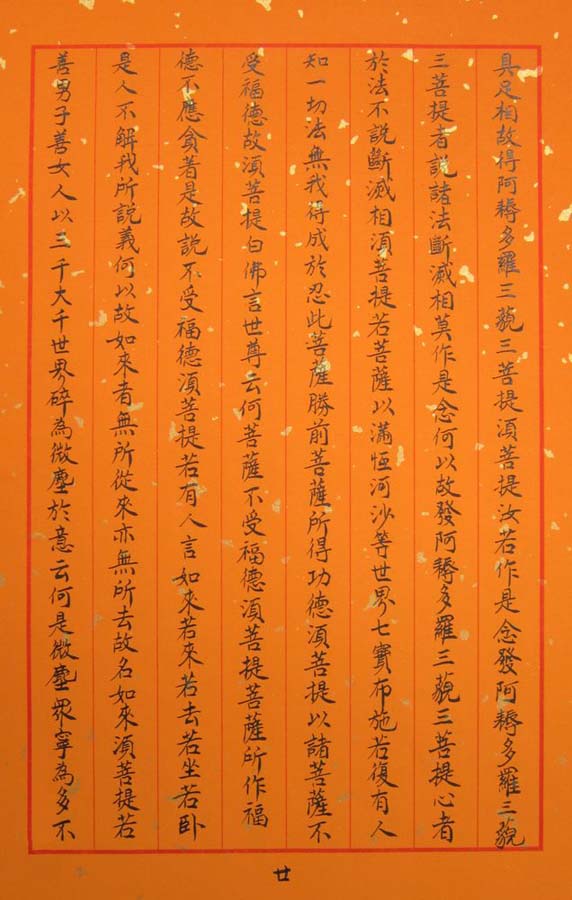 具足相故得阿耨多羅三藐三菩提須菩提汝若作是念發阿耨多羅三藐
三菩提者說諸法斷滅相莫作是念何以故發阿耨多羅三藐三菩提心者
於法不說斷滅相須菩提若菩薩以滿恆河沙等世界七寶布施若復有人
知一切法無我得成於忍此菩薩勝前菩薩所得功德須菩提以諸菩薩不
受福德故須菩提白佛言世尊云何菩薩不受福德須菩提菩薩所作福
德不應貪著是故說不受福德須菩提若有人言如來若來若去若坐若卧
是人不解我所說義何以故如來者無所從來亦無所去故名如來須菩提若
善男子善女人以三千大千世界碎為微塵於意云何是微塵眾寧為多不
廿